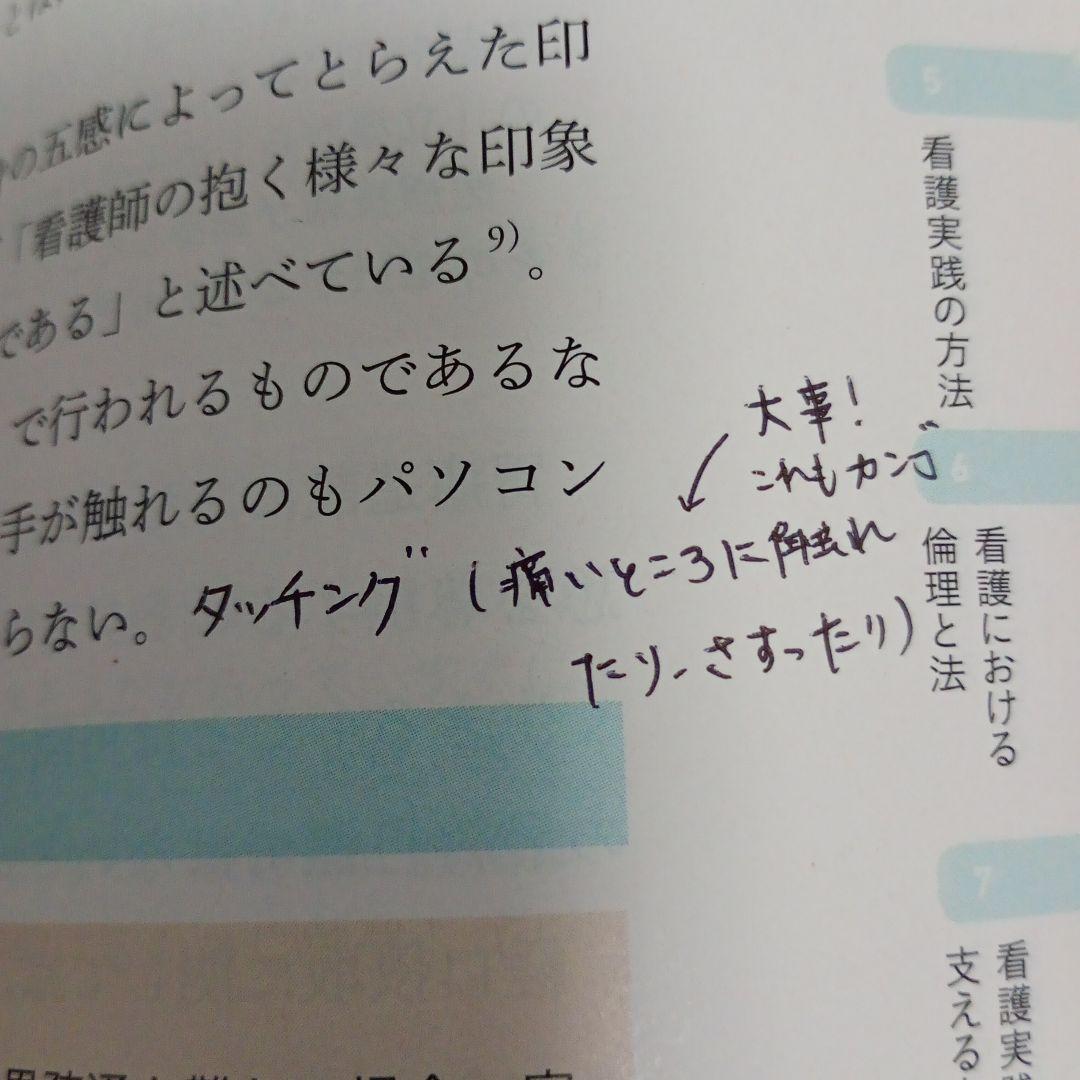 の五感によってとらえた印
「看護師の抱く様々な印象
である」と述べている9)。
で行われるものであるな
手が触れるのもパソコン
らない。
大事!
これもカンゴ
タッチング(痛いところに触れ
たり、さすったり)
5
看護実践の方法
6
看護における
倫理と法
7
看護実
支える